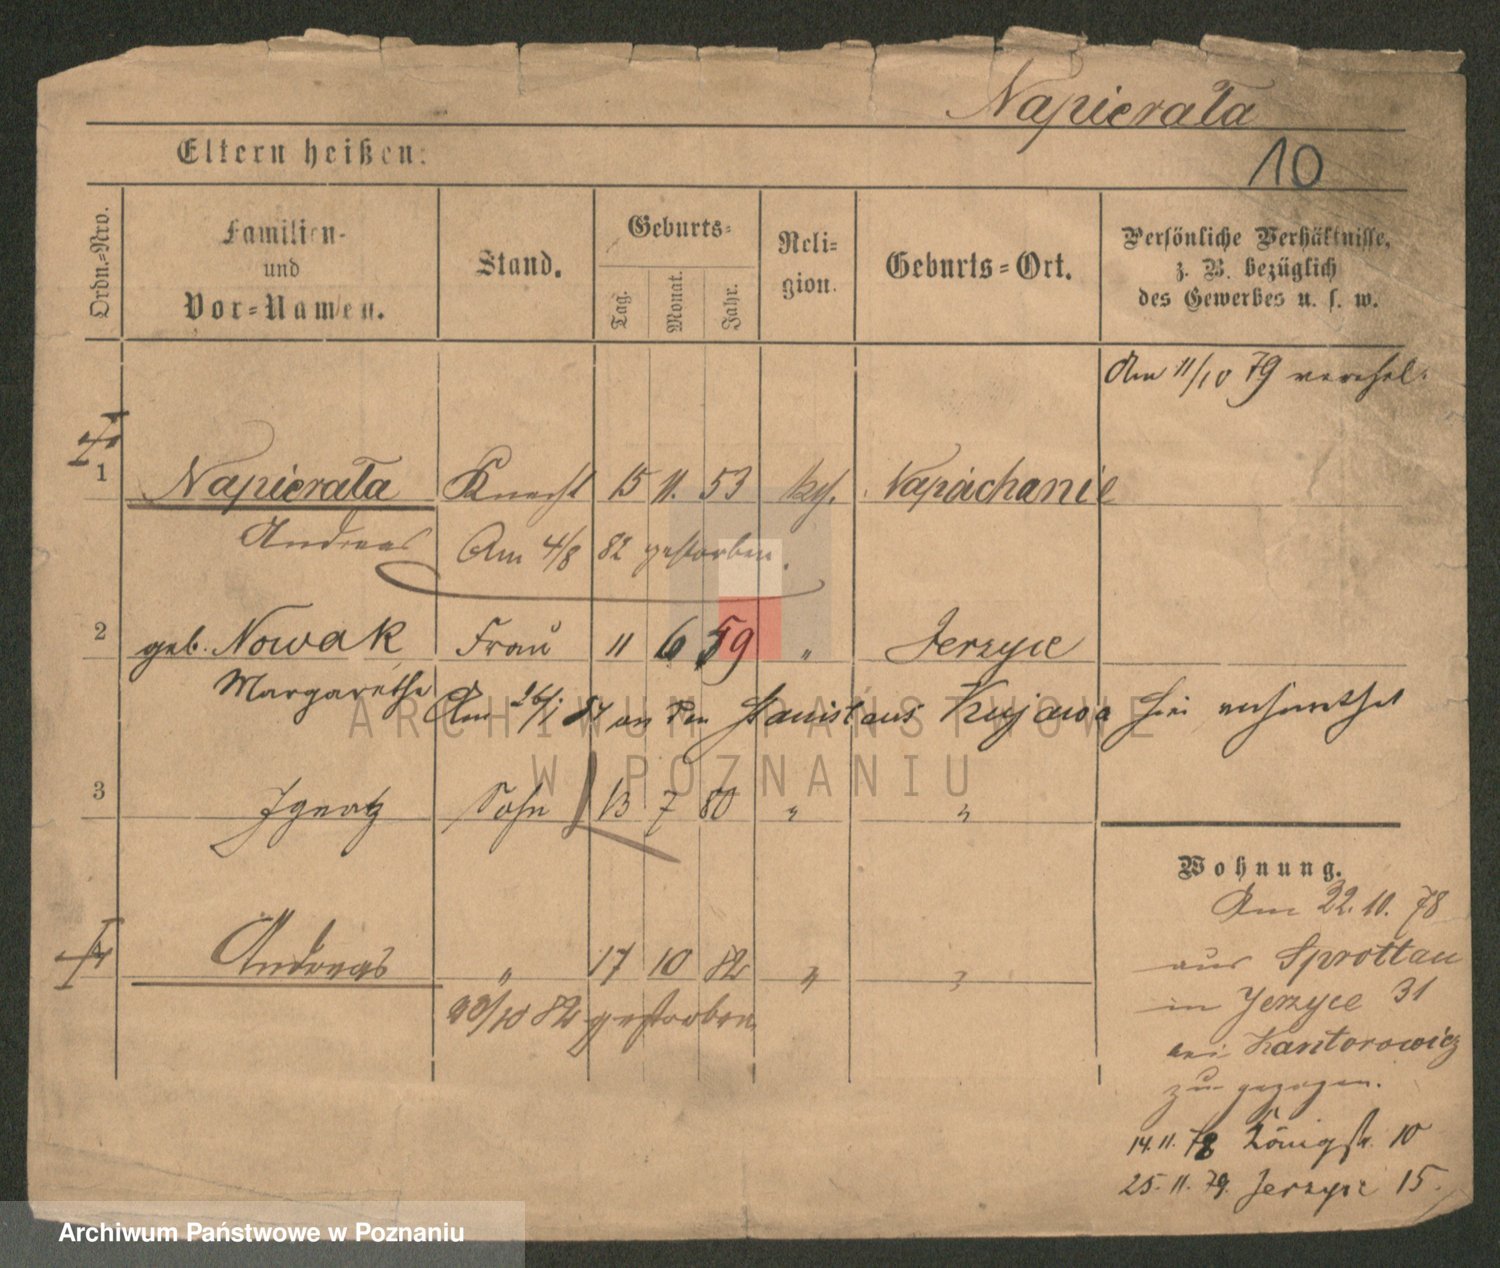 Napierała
10
Eltern heißen:
Ordn.-Nro.
Familien-
und
Vor-Namen.
Stand.
Geburts-
Tag.
Monat.
Jahr.
Reli-
gion.
Geburts-Ort.
Persönliche Verhältnisse,
z. B. bezüglich
des Gewerbes u. s. w.
Am 11/10 79 verehel.
1 Napierała Knecht 15 11. 53 kath. Napachanie
Andreas Am 4/8 82 gestorben.
2 geb. Nowak Frau 11 6 59 " Jerzyce
Margarethe Am 26/1 84 an den Stanislaus Kujawa hier verheirathet
3 Ignatz Sohn 13 7 80 " "
Wohnung.
Am 22.10. 78
aus Sprottau
in Jerzyce 31
bei Kantorowicz
zugezogen.
Andreas " 17 10 82 " "
/10 82 gestorben
14.11.78 Königstr. 10
25.11.79. Jerzyce 15.
ARCHIWUM PAŃSTWOWE
W POZNANIU
Archiwum Państwowe w Poznaniu